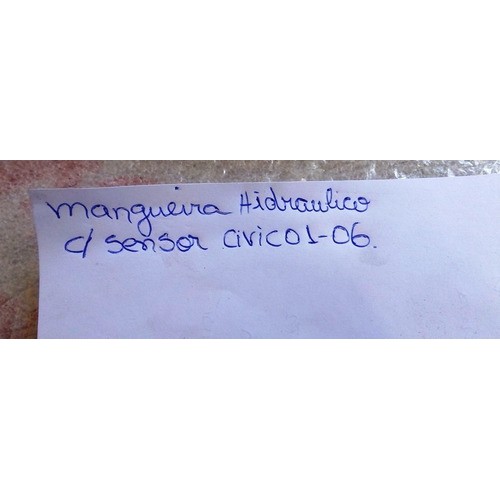 mangueira Hidraulico
c/ sensor civic 01-06.